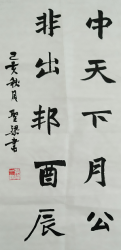 中天下月公
非出邦酉辰
己亥秋月聖梁書